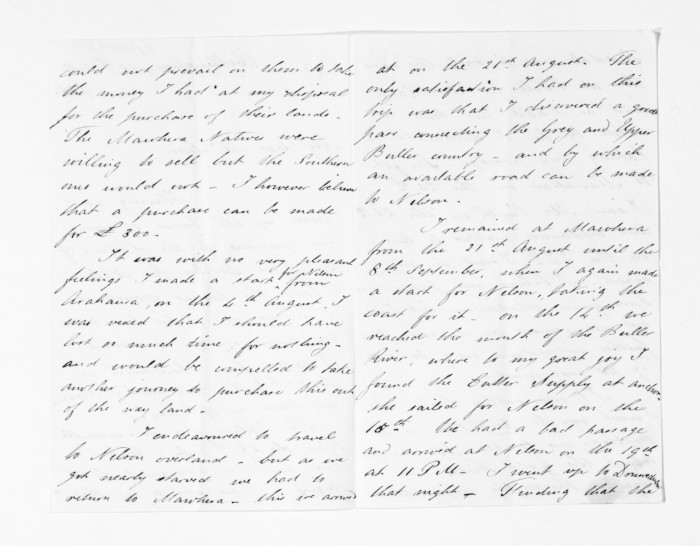 could not prevail on them to take
the money I had at my disposal
for the purchase of their lands -
The Mawhera Natives were
willing to sell but the Southern
ones would not - I however believe
that a purchase can be made
for £300 -
It was with no very pleasant
feelings I made a start for Nelson from
Arahaura, on the 4th August, I
was vexed that I should have
lost so much time, for nothing -
and would be compelled to take
another journey to purchase this out
of the way land -
I endeavoured to travel
to Nelson overland - but as we
got nearly starved we had to
return to Mawhera - this we arrived
at on the 21st August. The
only satisfaction I had on this
trip was that I discovered a good
pass connecting the Grey and Upper
Buller country - and by which
an available road can be made
to Nelson.
I remained at Mawhera
from the 21st August until the
8th September, when I again made
a start for Nelson, taking the
coast for it - on the 14th we
reached the mouth of the Buller
River, where to my great joy I
found the Cutter Supply at anchor -
she sailed for Nelson on the
16th We had a bad passage
and arrived at Nelson on the 19th
at 11 PM - I went up to
that night - Finding that the